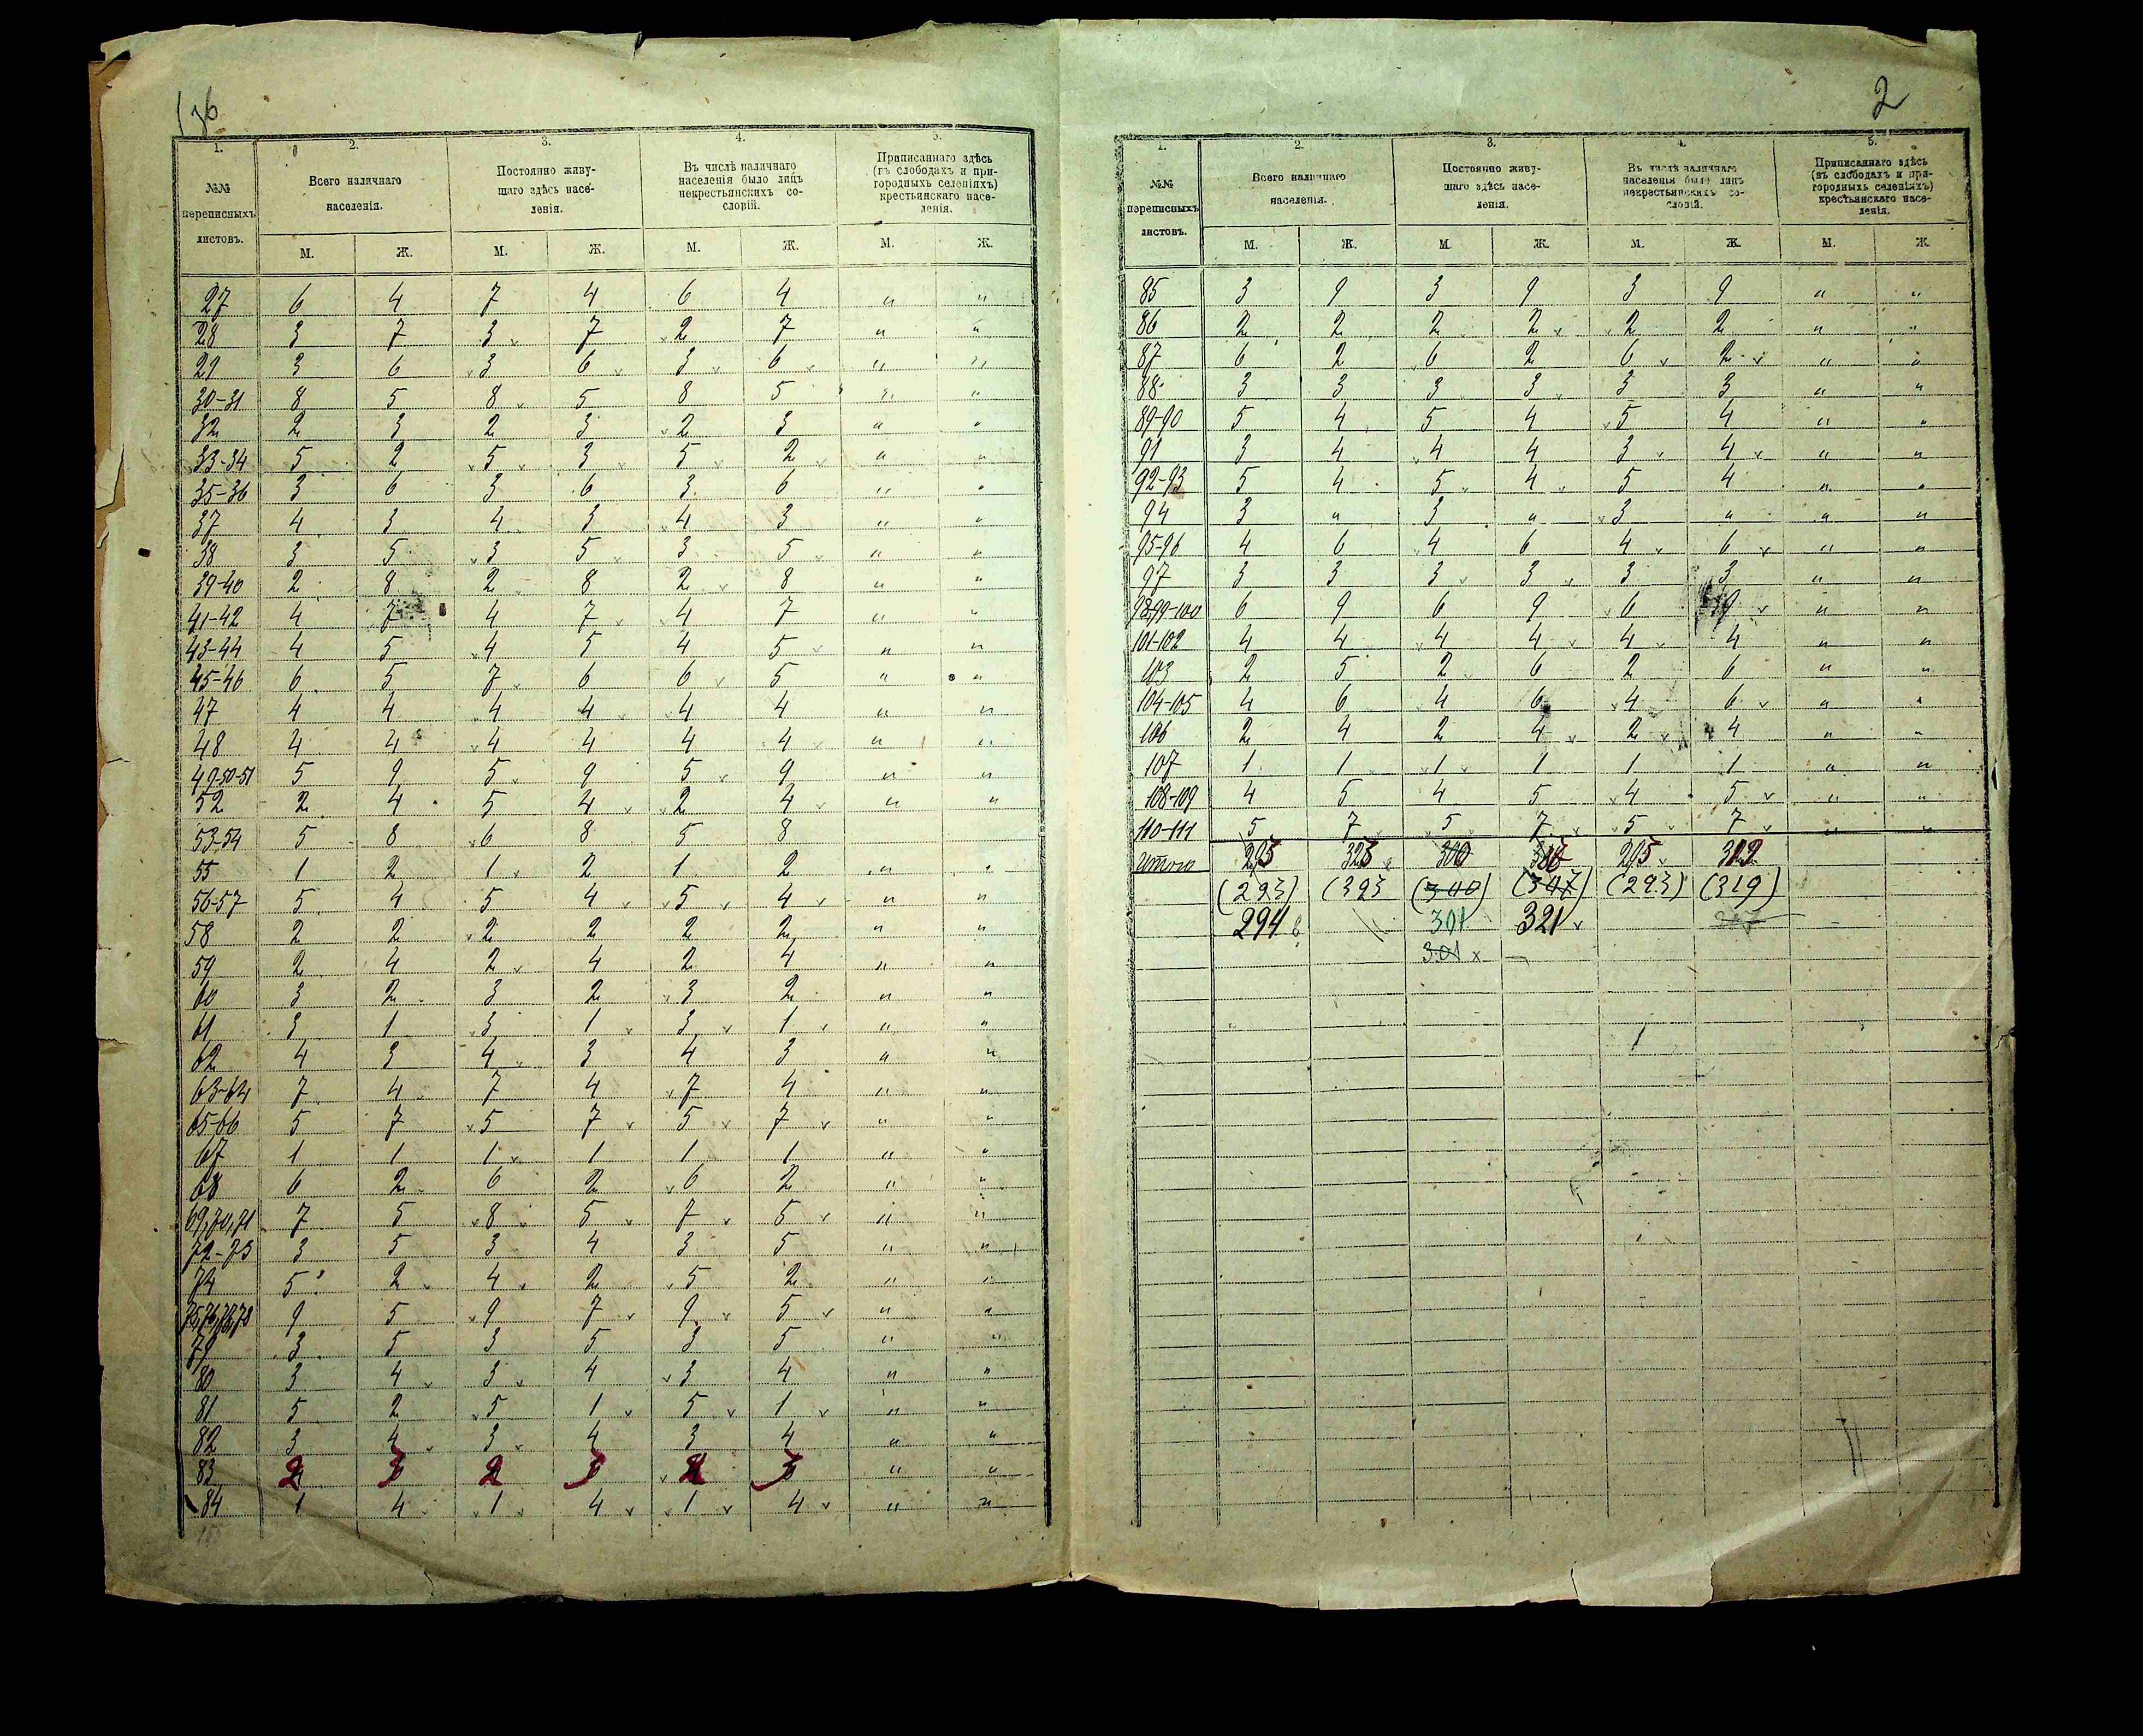 136
1. 2. 3. 4. 5.
№№ переписныхъ листовъ. Всего наличнаго населенія. Постоянно живущаго здѣсь насе-ленія. Въ числѣ наличнаго населенія было лицъ некрестьянскихъ со-словій. Приписаннаго здѣсь (въ слободахъ и при-городныхъ селеніяхъ) крестьянскаго насе-ленія.
М. Ж. М. Ж. М. Ж. М. Ж.
27 6 4 7 4 6 4 " "
28 3 7 3 7 2 7 " "
29 3 6 3 6 3 6 " "
30-31 8 5 8 5 8 5 " "
32 2 3 2 3 2 3 " "
33-34 5 2 5 3 5 2 " "
35-36 3 6 3 6 3 6 " "
37 4 3 4 3 4 3 " "
38 3 5 3 5 3 5 " "
39-40 2 8 2 8 2 8 " "
41-42 4 7 4 7 4 7 " "
43-44 4 5 4 5 4 5 " "
45-46 6 5 7 6 6 5 " "
47 4 4 4 4 4 4 " "
48 4 4 4 4 4 4 " "
49-50-51 5 9 5 9 5 9 " "
52 2 4 5 4 2 4 " "
53-54 5 8 6 8 5 8
55 1 2 1 2 1 2 " "
56-57 5 4 5 4 5 4 " "
58 2 2 2 2 2 2 " "
59 2 4 2 4 2 4 " "
60 3 2 3 2 3 2 " "
61 3 1 3 1 3 1 " "
62 4 3 4 3 4 3 " "
63-64 7 4 7 4 7 4 " "
65-66 5 7 5 7 5 7 " "
67 1 1 1 1 1 1 " "
68 6 2 6 2 6 2 " "
69,70,71 7 5 8 5 7 5 " "
72-73 3 5 3 4 3 5 " "
74 5 2 4 2 5 2 " "
75,76,77,78 9 5 9 7 9 5 " "
79 3 5 3 5 3 5 " "
80 3 4 3 4 3 4 " "
81 5 2 5 1 5 1 " "
82 3 4 3 4 3 4 " "
83 2 3 2 3 2 3 " "
84 1 4 1 4 1 4 " "
2
1. 2. 3. 4. 5.
№№ переписныхъ листовъ. Всего наличнаго населенія. Постоянно живу-щаго здѣсь насе-ленія. Въ числѣ наличнаго населенія было лицъ некрестьянскихъ со-словій. Приписаннаго здѣсь (въ слободахъ и при-городныхъ селеніяхъ) крестьянскаго насе-ленія.
М. Ж. М. Ж. М. Ж. М. Ж.
85 3 9 3 9 3 9 " "
86 2 2 2 2 2 2 " "
87 6 2 6 2 6 2 " "
88 3 3 3 3 3 3 " "
89-90 5 4 5 4 5 4 " "
91 3 4 4 4 3 4 " "
92-93 5 4 5 4 5 4 " "
94 3 " 3 " 3 " " "
95-96 4 6 4 6 4 6 " "
97 3 3 3 3 3 3 " "
98,99-100 6 9 6 9 6 9 " "
101-102 4 4 4 4 4 4 " "
103 2 5 2 6 2 6 " "
104-105 4 6 4 6 4 6 " "
106 2 4 2 4 2 4 " "
107 1 1 1 1 1 1 " "
108-109 4 5 4 5 4 5 " "
110-111 5 7 5 7 5 7 " "
Итого 295 323 300 295
(293) (323 (300) (347) (293) (319)
294 301 321
301 x
1